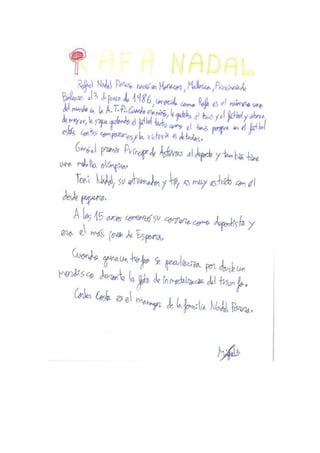 RAFA NADAL
Rafael Nadal Parera nació en Manacor, Mallorca, Provincia de
Baleares el 3 de junio de 1986, conocido como Rafa es el número uno
del mundo en la A.T.P. Cuando era niño, le gustaba el tenis y el fútbol y ahora
de mayor, le sigue gustando el fútbol tanto como el tenis porque en el fútbol
estás con tus compañeros y la victoria es de todos.
Ganó el premio Príncipe de Asturias al deporte y también tiene
una medalla olímpica.
Toni Nadal, su entrenador y tío, es muy estricto con él
desde pequeño.
A los 15 años comenzó su carrera como deportista y
era el más joven de España.
Cuando gana un trofeo se peculiariza por darle un
mordisco durante la foto de inmortalización del triunfo.
Carlos Costa es el manager de la familia Nadal Parera.